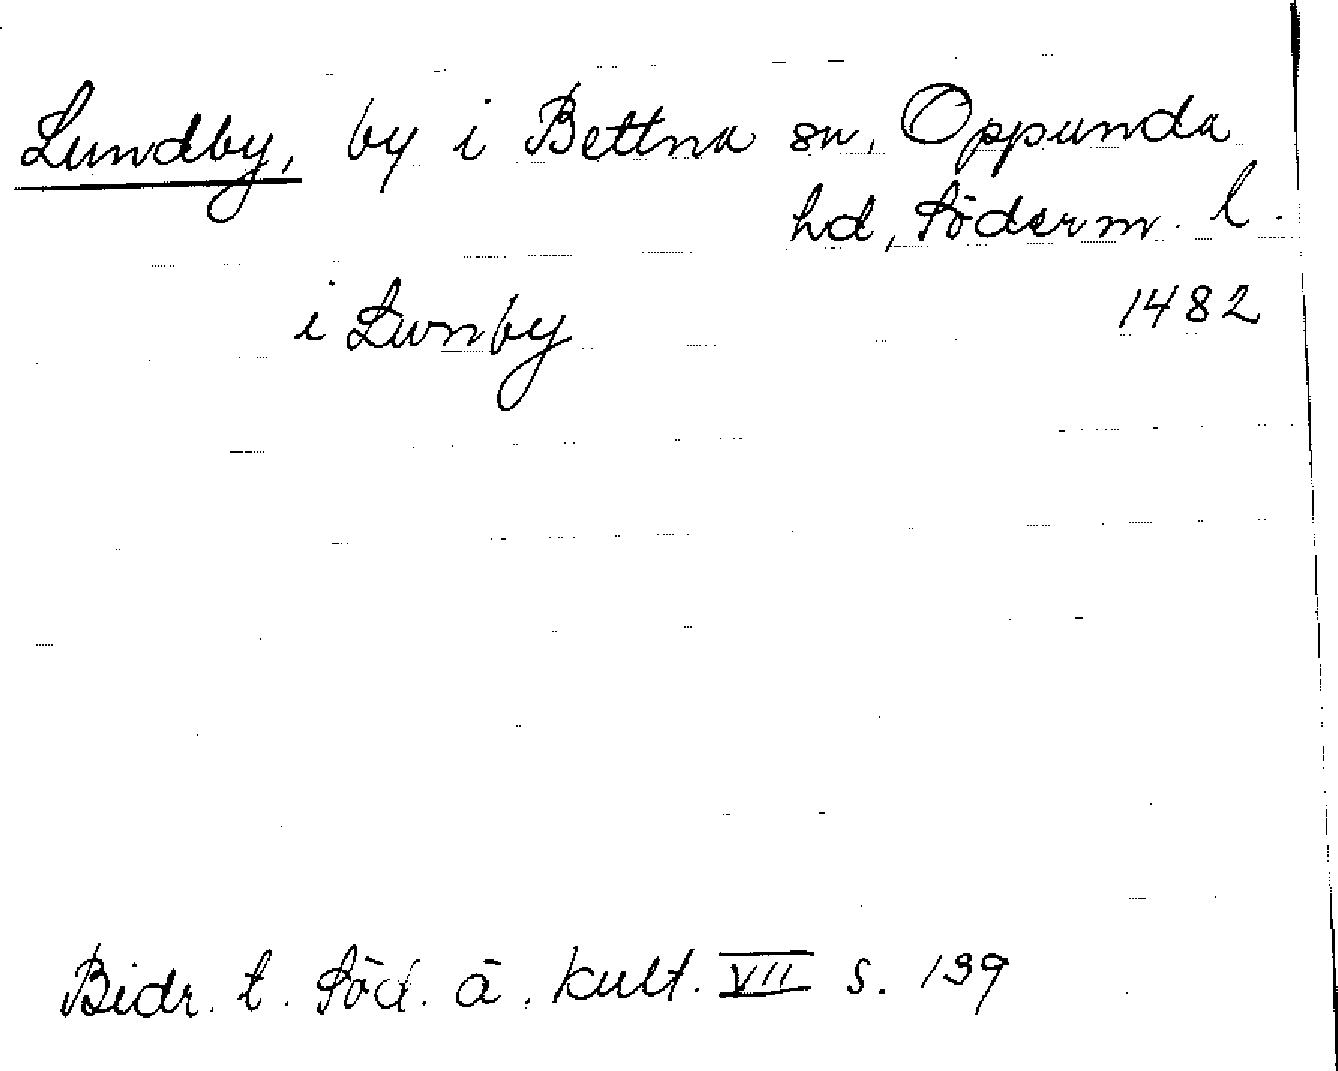 Lundby, by i Bettna sn, Oppunda
hd, Söderm. l.
i Lwnby 1482
Bidr. t. Söd. ä. kult. VII s. 139